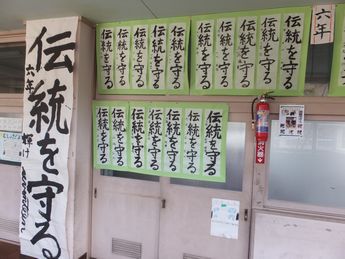 伝統を守る
六年
輝け
伝統を守る
伝統を守る
伝統を守る
伝統を守る
伝統を守る
伝統を守る
伝統を守る
伝統を守る
伝統を守る
伝統を守る
六年
伝統を守る
伝統を守る
伝統を守る
伝統を守る
伝統を守る
伝統を守る
伝統を守る
消火器